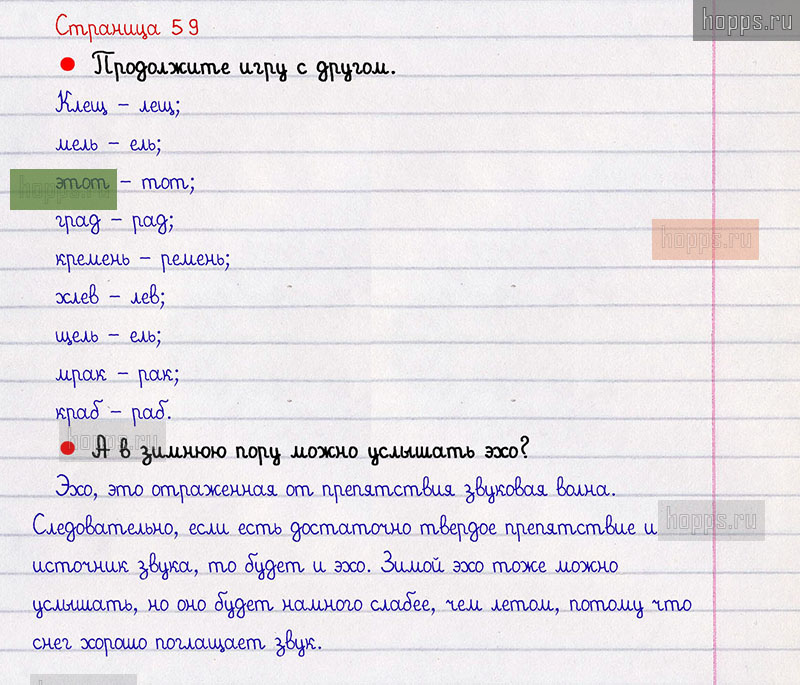 hopps.ru
Страница 59
Продолжите игру с другом.
Клещ – лещ;
мель – ель;
этот – тот;
hopps.ru
град – рад;
hopps.ru
кремень – ремень;
хлев – лев;
щель – ель;
мрак – рак;
краб – раб.
hopps.ru
А в зимнюю пору можно услышать эхо?
Эхо, это отраженная от препятствия звуковая волна.
Следовательно, если есть достаточно твердое препятствие и
hopps.ru
источник звука, то будет и эхо. Зимой эхо тоже можно
услышать, но оно будет намного слабее, чем летом, потому что
снег хорошо поглощает звук.